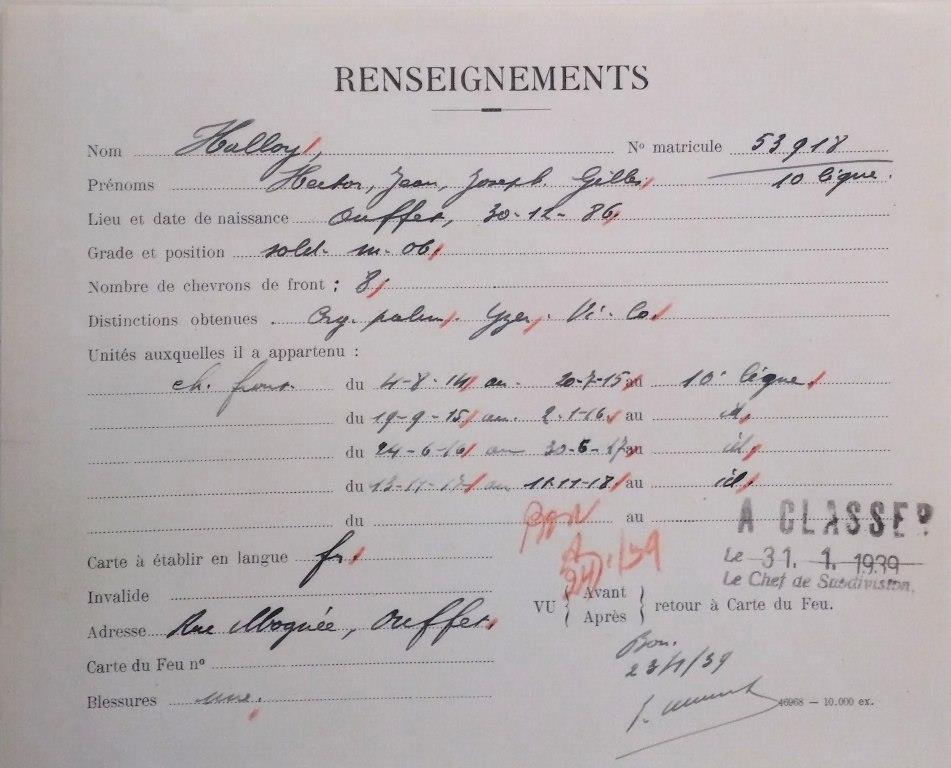 RENSEIGNEMENTS
Nom Halloy, Nº matricule 53918
Prénoms Hector, Jean, Joseph Gilles 10 ligne.
Lieu et date de naissance Ouffet, 30-12-86
Grade et position sold. m. 06
Nombre de chevrons de front : 8
Distinctions obtenues Yzer, Vi. Co.
Unités auxquelles il a appartenu :
ch. front. du 4-8-14 au 20-7-15 au 10e ligne
du 19-9-15 au 2-1-16 au id,
du 24-6-16 au 30-5-17 au id,
du 13-11-17 au 11-11-18 au id,
du au
BON
A CLASSER
Carte à établir en langue fr.
Le 31. 1. 1939
Le Chef de Subdivision,
Invalide
VU { Avant Après } retour à Carte du Feu.
Adresse Rue Moquée, Ouffet.
Carte du Feu nº
Bon.
23/1/39
Blessures une.
46968 — 10.000 ex.